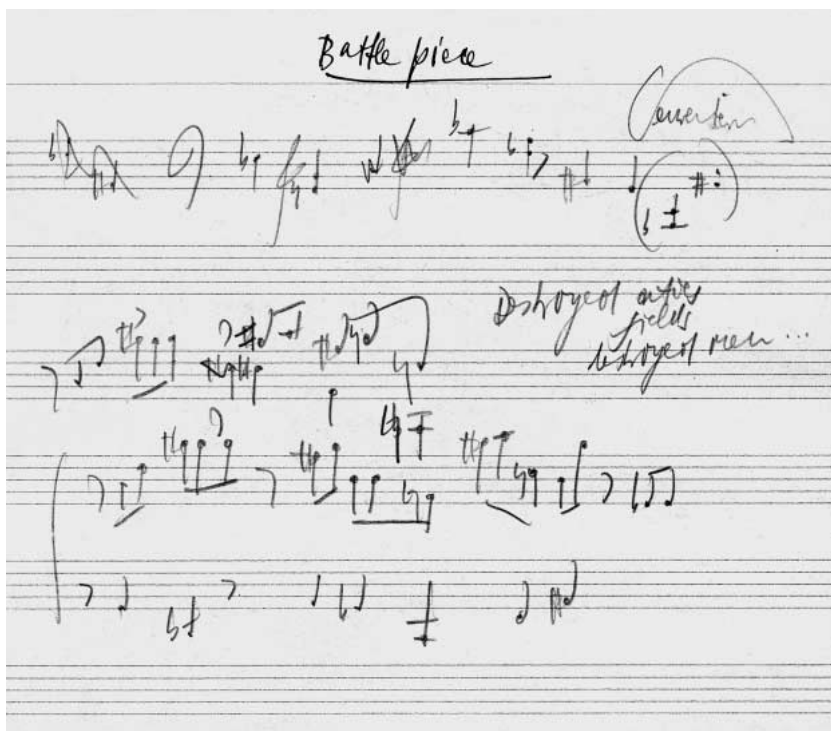 Battle piece
Destroyed cities
fields
destroyed men ...